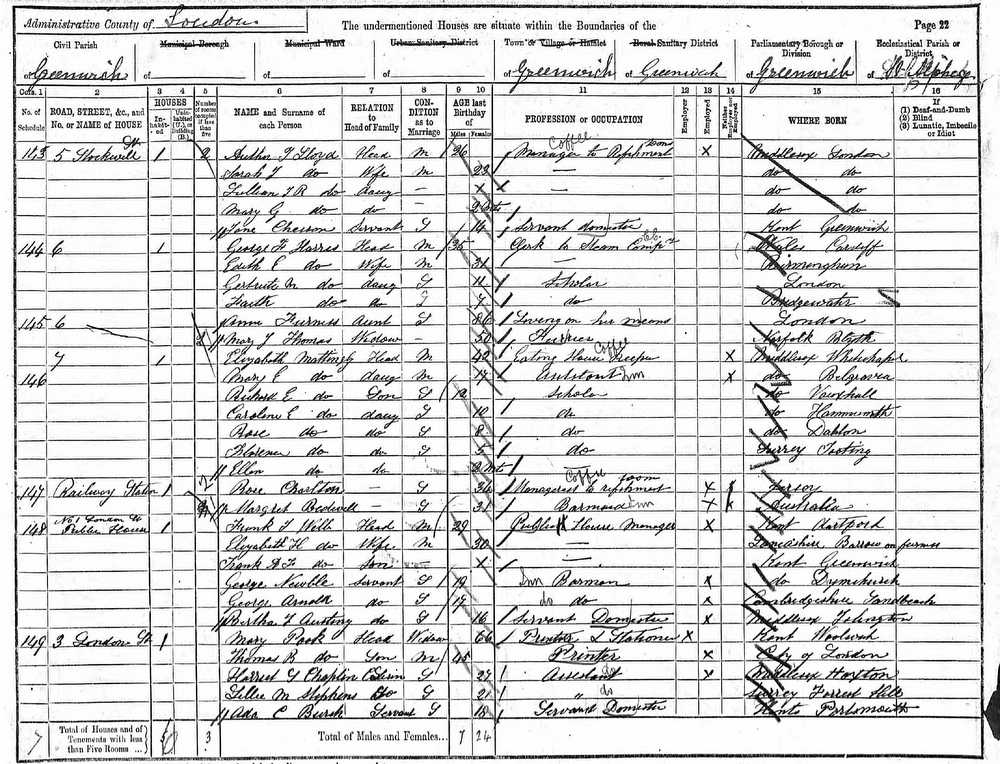 Administrative County of London
The undermentioned Houses are situate within the Boundaries of the
Page 22
Civil Parish
Municipal Borough
Municipal Ward
Urban Sanitary District
Town or Village or Hamlet
Rural Sanitary District
Parliamentary Borough or Division
Ecclesiastical Parish or District
of Greenwich of of of of Greenwich of Greenwich of Greenwich of St Alphege
Cols. 1 2 3 4 5 6 7 8 9 10 11 12 13 14 15 16
No. of Schedule
ROAD, STREET, &c., and No. or NAME of HOUSE
HOUSES
Inhabited
Uninhabited (U.), or Building (B.)
Number of rooms occupied if less than five
NAME and Surname of each Person
RELATION to Head of Family
CONDITION as to Marriage
AGE last Birthday of
Males Females
PROFESSION or OCCUPATION
Employer
Employed
Neither Employer nor Employed
WHERE BORN
If
(1) Deaf-and-Dumb
(2) Blind
(3) Lunatic, Imbecile or Idiot
143 5 Stockwell St 1 2 Arthur Lloyd Head M 26 Manager to Coffee Refreshment X Middlesex London
Sarah do Wife M 23 — do do
Lillian R do daug — X — do do
Mary G do do — do do
Jane Servant S 14 Servant domestic Kent Greenwich
144 6 1 George F Harris Head M 35 Clerk to Steam X Wales Cardiff
Edith E do Wife M 31 — Birmingham
Gertrude M do daug S 11 Scholar London
Faith do do S 7 do Bridgewater
145 6 Annie Furniss Aunt S Living on her means London
Mary J Thomas Widow 50 Norfolk
7 1 Elizabeth Head M 42 Eating House Coffee Keeper X Middlesex Whitechapel
146 Mary E do daug M 17 Assistant X do Belgravia
Richard E do Son S 12 Scholar do Vauxhall
Caroline E do daug S 10 do do Hammersmith
Rose do do S 8 do do Dalston
Florence do do S 5 do Surrey Tooting
Ellen do do
147 Railway Station 1 Rose Charlton — S 34 Manageress to Coffee refreshment room X Jersey
Margaret S 31 Barmaid Inn X Australia
148 No 1 London St Public House 1 Frank Head M 29 Public House Manager X Kent Dartford
Elizabeth H do Wife M 30 — Lancashire Barrow on furness
Frank do Son — X — Kent Greenwich
George Newble Servant S 19 Inn Barman X do Dymchurch
George Arnold do S 17 do do X Cambridgeshire Landbeach
Bertha Austing do S 16 Servant Domestic X Middlesex Islington
149 3 London St 1 Mary Pook Head Widow 66 Printer & Stationer X Kent Woolwich
Thomas R do Son M 45 Printer X City of London
Harriet Chaplin S 27 Assistant do X Middlesex Hoxton
Lillie M Stephens do S 21 " do Surrey Forest Hill
Ada C Servant S 18 Servant Domestic Hants Portsmouth
7 Total of Houses and of Tenements with less than Five Rooms ... 3 Total of Males and Females... 7 24